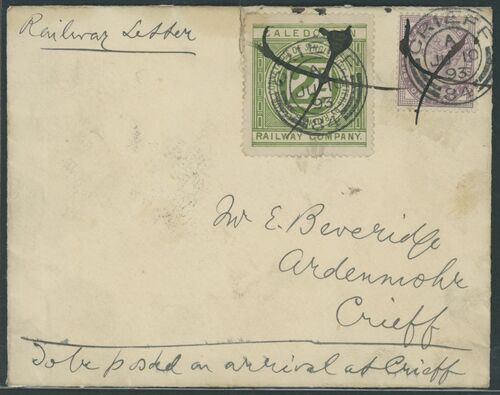 Railway Letter
CALEDONIAN
RAILWAY COMPANY.
CRIEFF
93
84
CRIEFF
A
JU 19
93
84
Mr E. Beveridge
Ardenmohr
Crieff
To be posted on arrival at Crieff